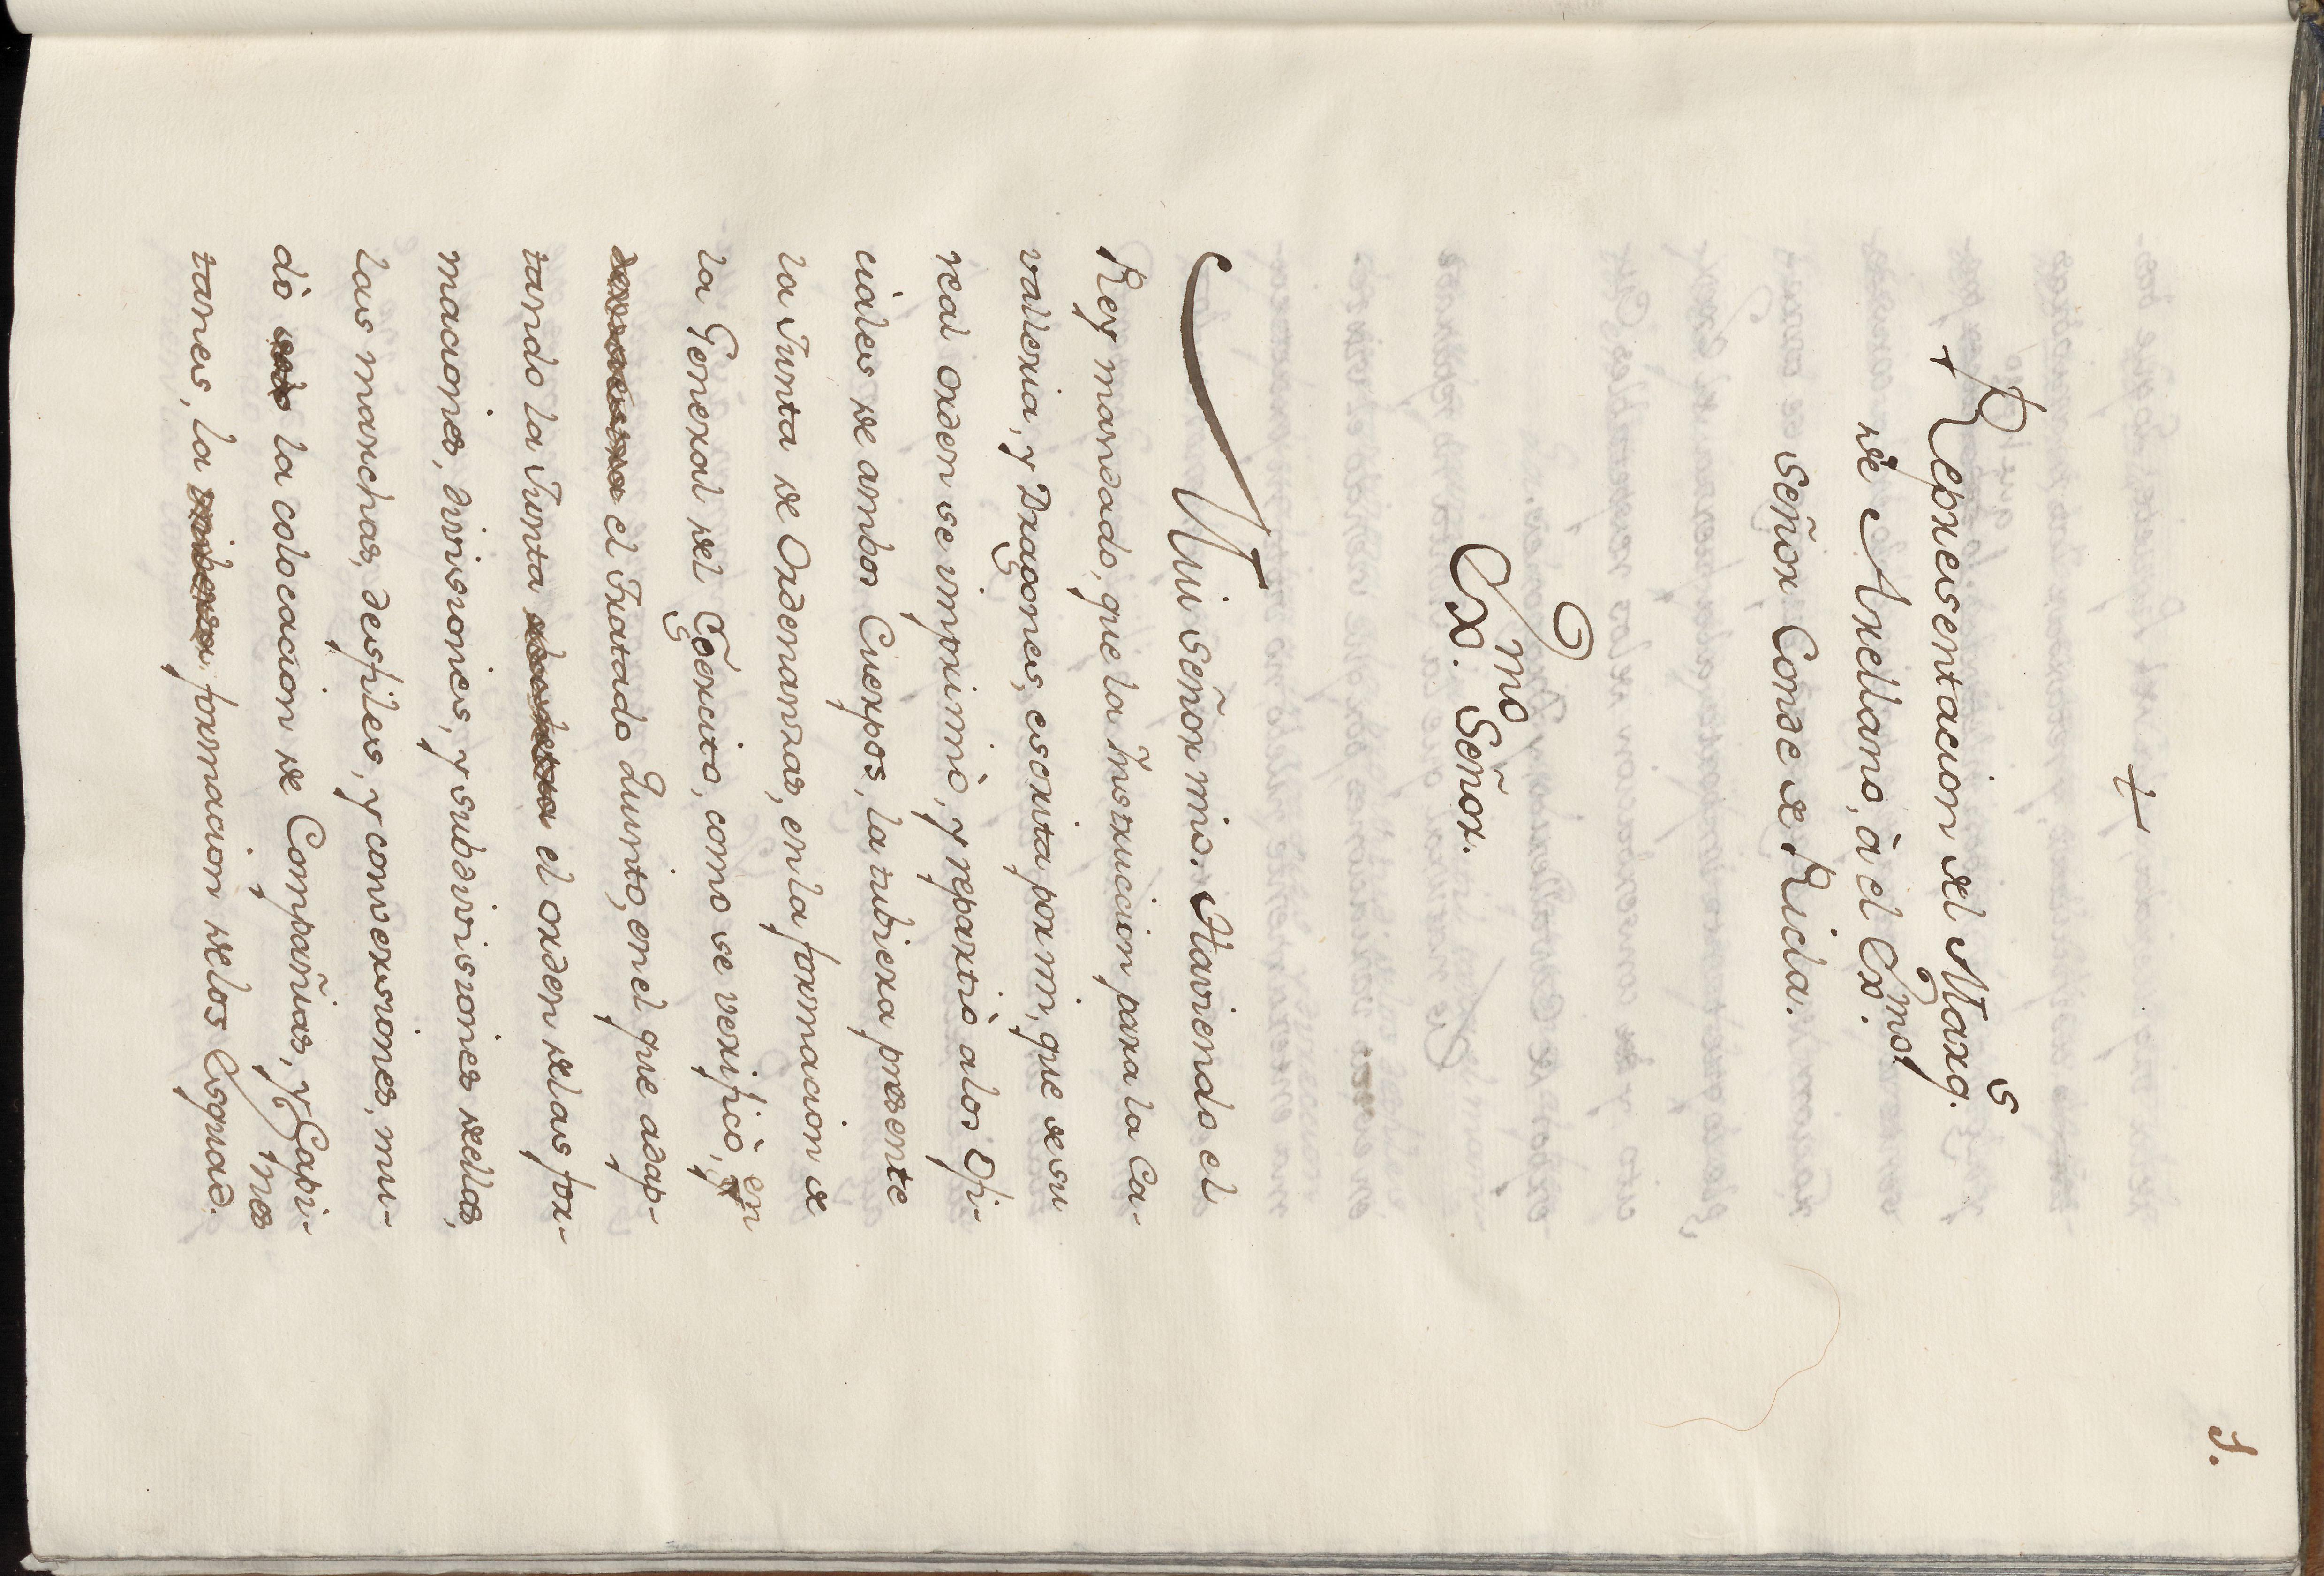 1.
+
Representacion del Marq.s
de Arellano, à el Ex.mo
señor Conde de Ricla.
Ex.mo Señor.
Mui señor mio. Haviendo el
Rey mandado, que la Instruccion para la Ca-
valleria, y Dragones, escrita por mi, que de su
real orden se imprimiò, y repartiò a los Ofi-
ciales de ambos Cuerpos, la tubiera presente
la Junta de Ordenanzas, en la formacion de
la General del Exército, como se verificò, en
el Tratado Quinto, en el que adap-
tando la Junta el orden de las for-
maciones, divisiones, y subdivisiones de ellas,
las marchas, desfiles, y conversiones, mu-
dò la colocacion de Compañias, y Capi-
tanes, la misma formacion de los Esquad.nes